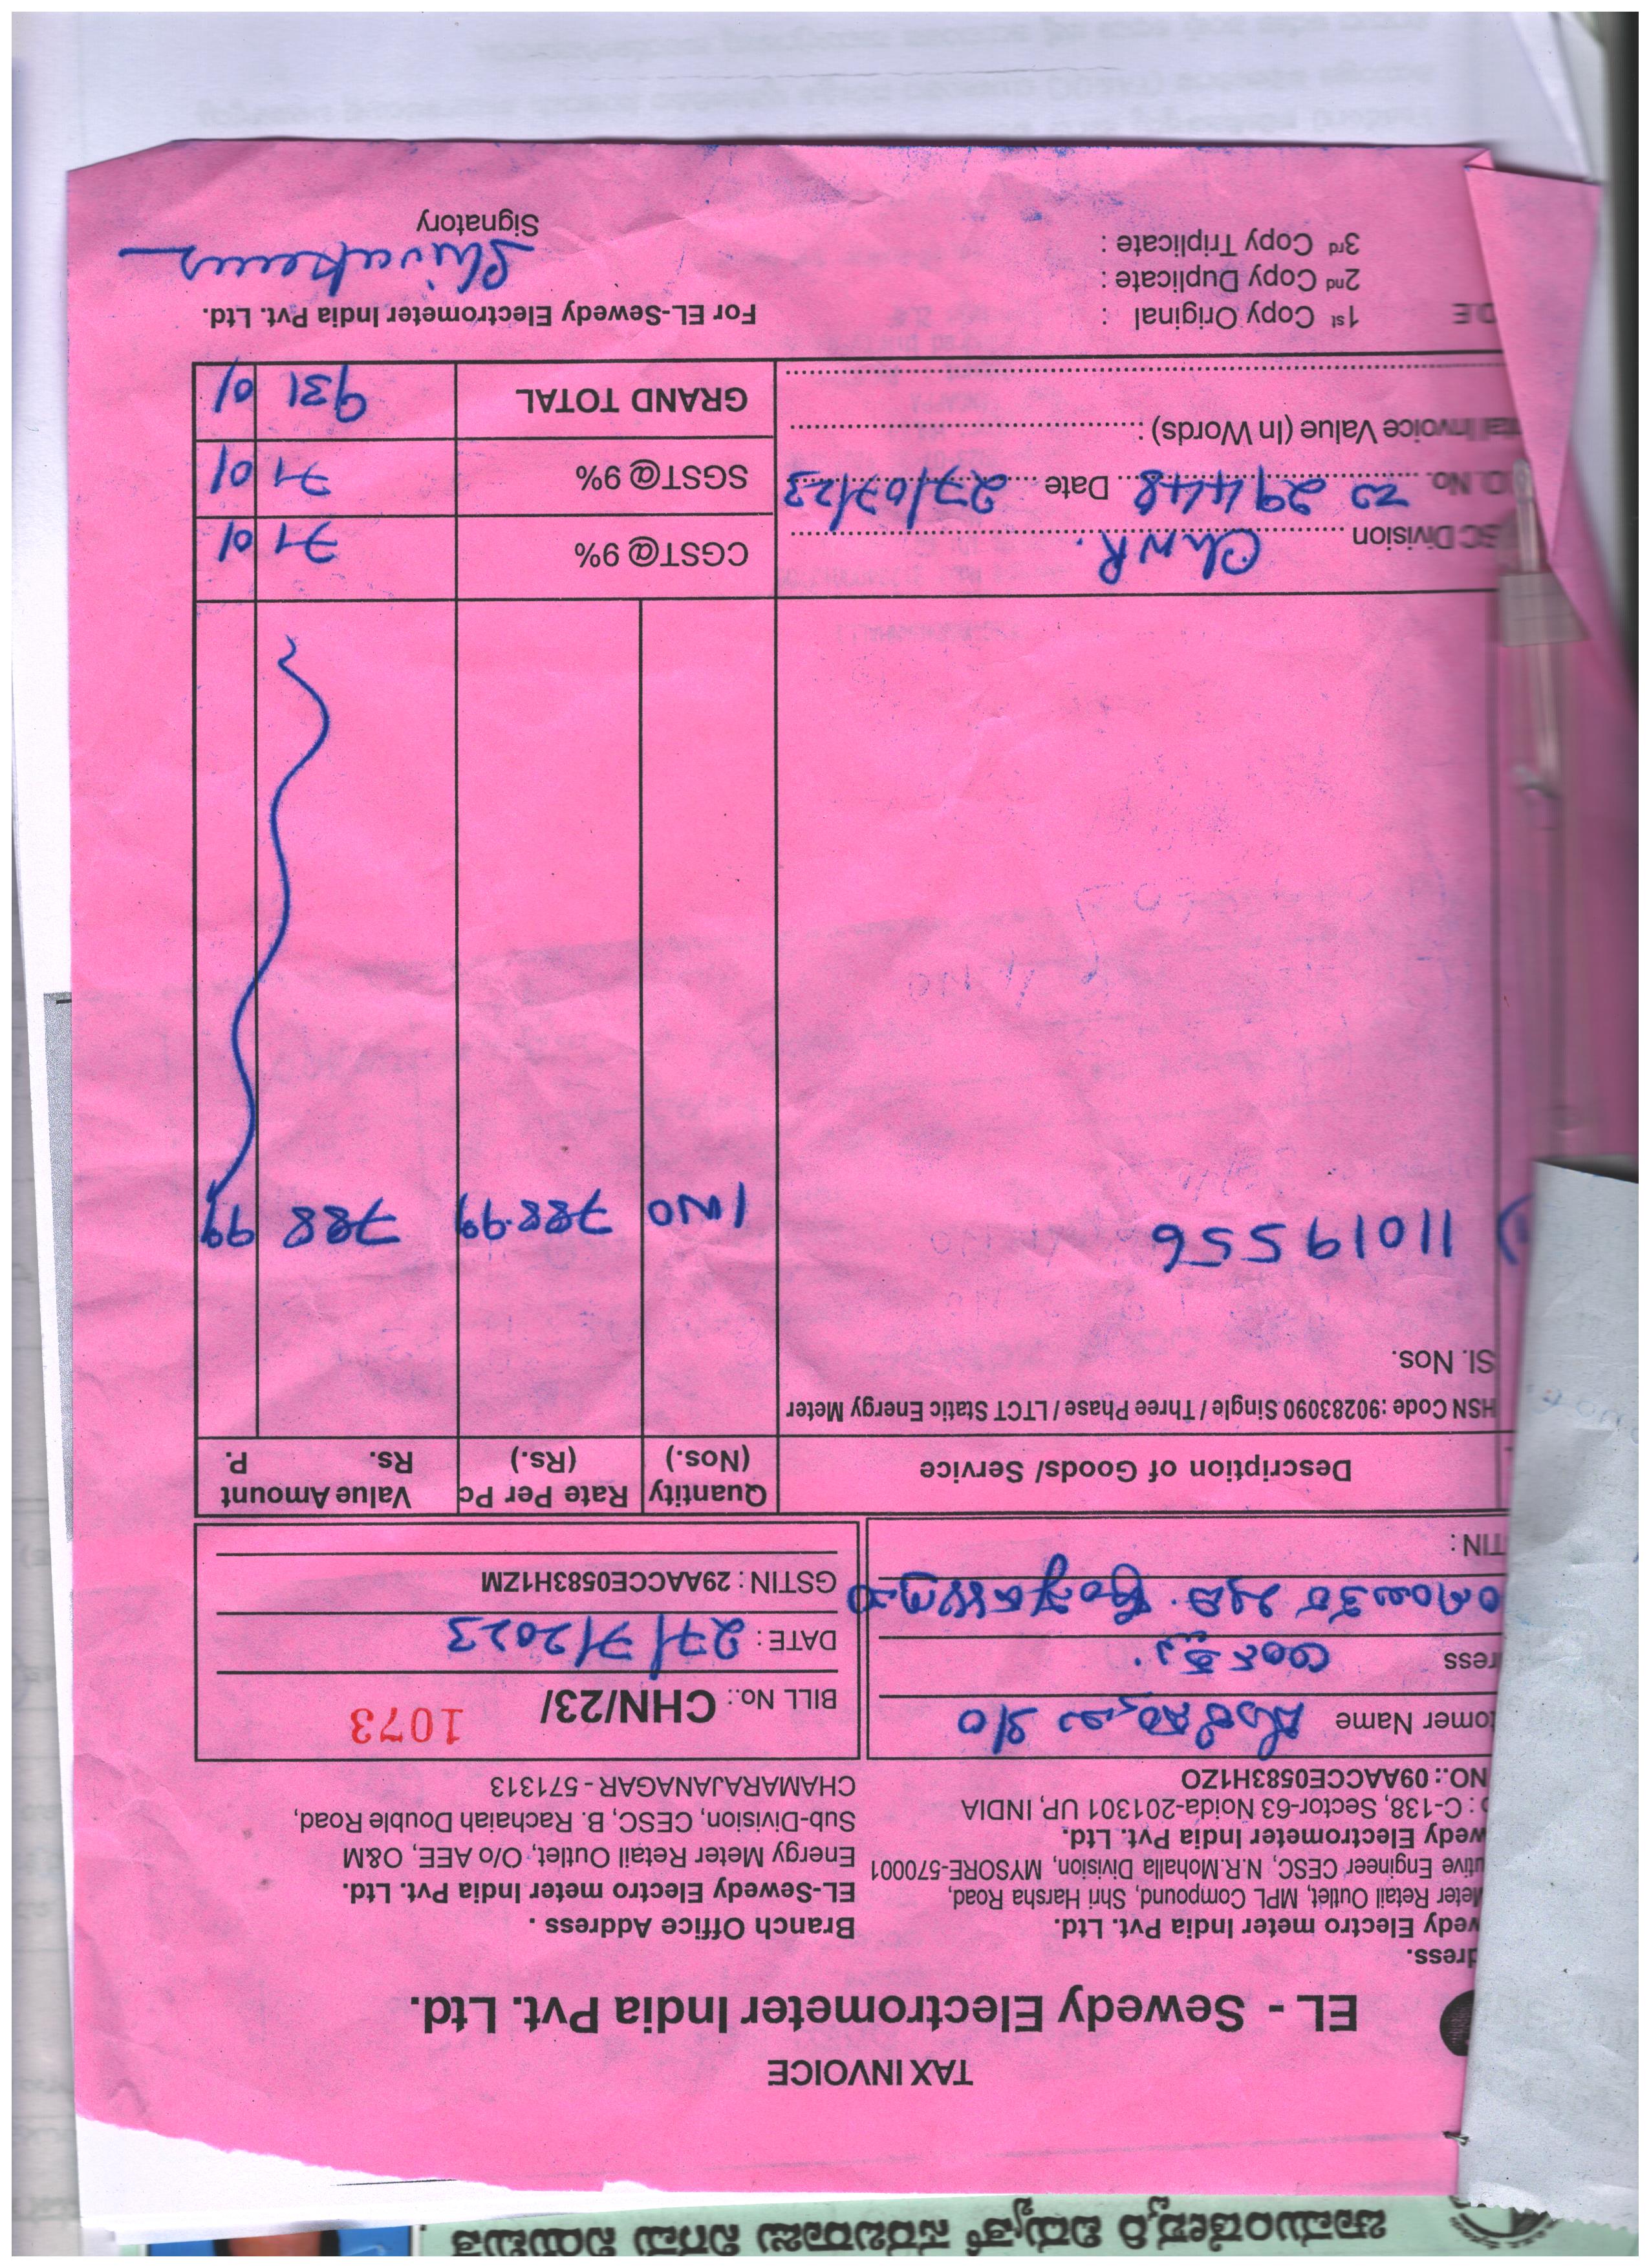 TAX INVOICE
EL - Sewedy Electrometer India Pvt. Ltd.
dress.
wedy Electro meter India Pvt. Ltd.
Meter Retail Outlet, MPL Compound, Shri Harsha Road,
utive Engineer CESC, N.R.Mohalla Division, MYSORE-570001
wedy Electrometer India Pvt. Ltd.
: C-138, Sector-63 Noida-201301 UP, INDIA
NO.: 09AACCE0583H1ZO
Branch Office Address .
EL-Sewedy Electro meter India Pvt. Ltd.
Energy Meter Retail Outlet, O/o AEE, O&M
Sub-Division, CESC, B. Rachaiah Double Road,
CHAMARAJANAGAR - 571313
tomer Name S/o
ress
TIN :
BILL No.: CHN/23/ 1073
DATE : 27/7/2023
GSTIN : 29AACCE0583H1ZM
Description of Goods/ Service Quantity (Nos.) Rate Per Pc (Rs.) Value Amount Rs. P.
HSN Code : 90283090 Single / Three Phase / LTCT Static Energy Meter
Sl. Nos.
1) 11019556 1 NO 788.99 788 99
SC Division ChNR. CGST@ 9% 71 01
O. No. 29448 Date 27/07/23 SGST@ 9% 71 01
tal Invoice Value (In Words) : GRAND TOTAL 931 01
DE 1st Copy Original :
2nd Copy Duplicate :
3rd Copy Triplicate :
For EL-Sewedy Electrometer India Pvt. Ltd.
Signatory
ಚಾಮುಂಡೇಶ್ವರಿ ವಿದ್ಯುತ್ ಸರಬರಾಜು ನಿಗಮ ನಿಯಮಿತ